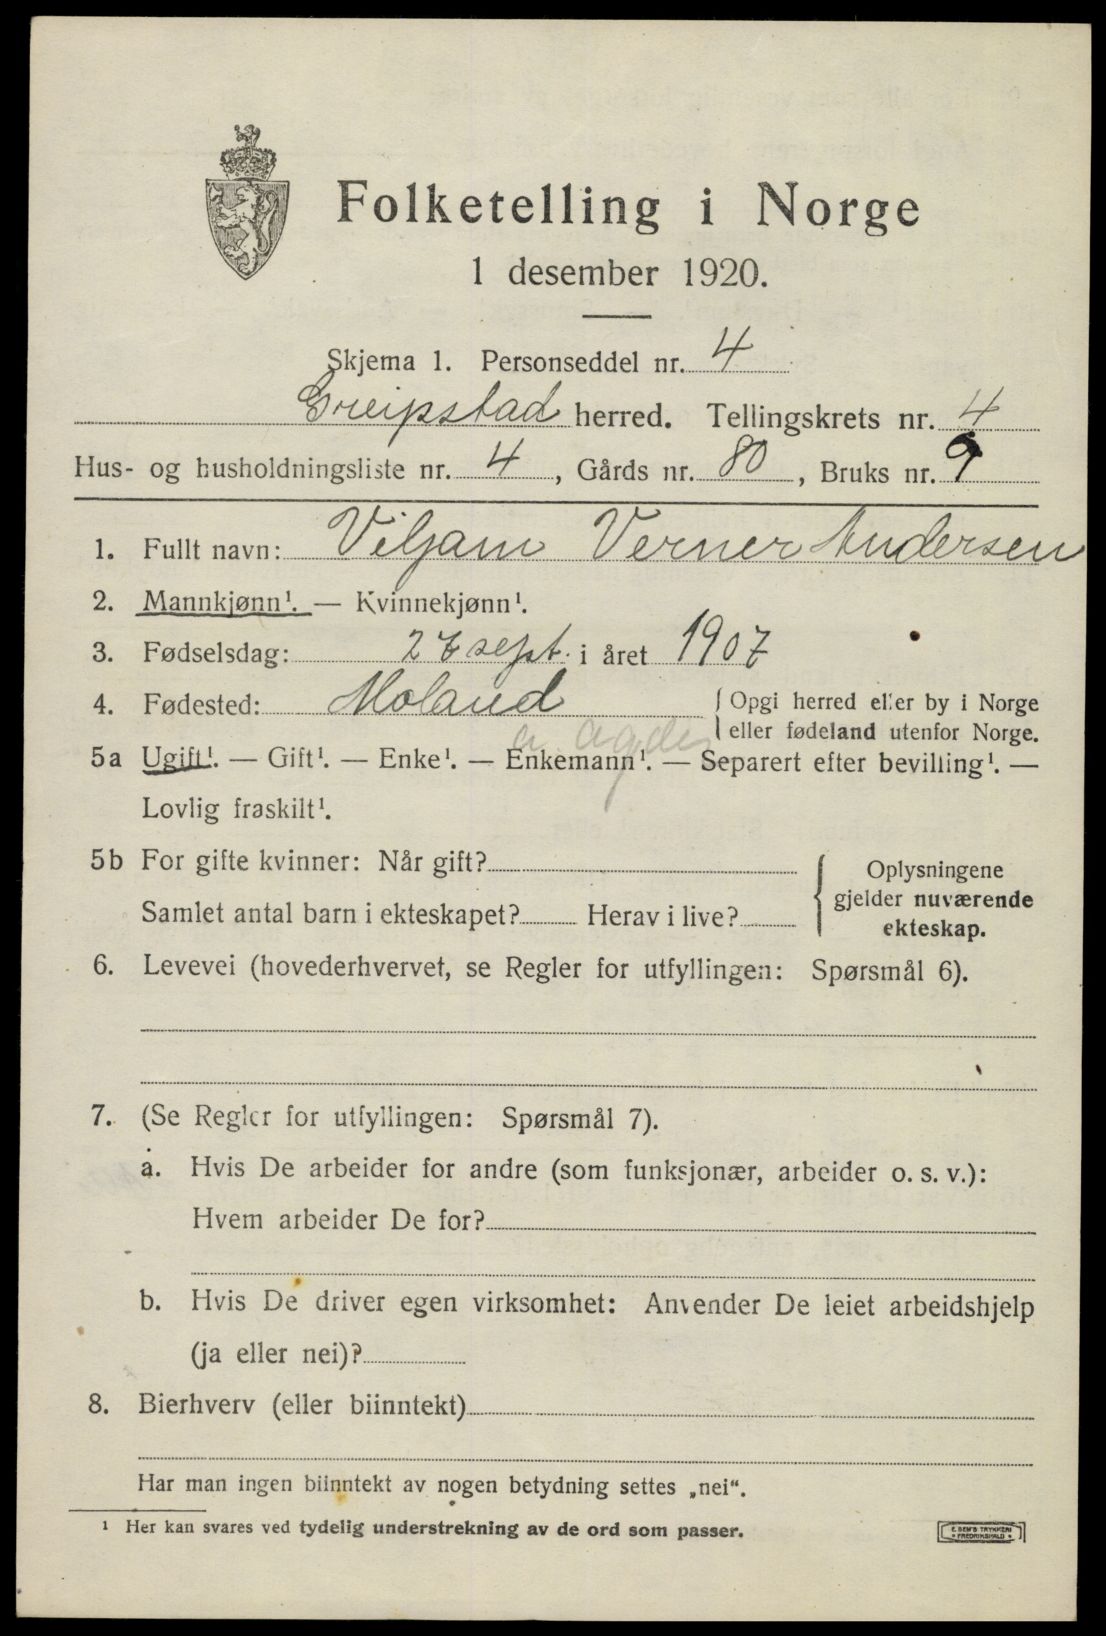 Folketelling i Norge
1 desember 1920.
Skjema 1. Personseddel nr. 4
Greipstad herred. Tellingskrets nr. 4
Hus- og husholdningsliste nr. 4, Gårds nr. 80, Bruks nr. 9
1. Fullt navn: Viljam Verner Andersen
2. Mannkjønn¹. — Kvinnekjønn¹.
3. Fødselsdag: 27 sept. i året 1907
4. Fødested: Moland { Opgi herred eller by i Norge
eller fødeland utenfor Norge.
a. agder
5a Ugift¹. — Gift¹. — Enke¹. — Enkemann¹. — Separert efter bevilling¹. —
Lovlig fraskilt¹.
5b For gifte kvinner: Når gift?
Samlet antal barn i ekteskapet? Herav i live?
{ Oplysningene
gjelder nuværende
ekteskap.
6. Levevei (hovederhvervet, se Regler for utfyllingen: Spørsmål 6).
7. (Se Regler for utfyllingen: Spørsmål 7).
a. Hvis De arbeider for andre (som funksjonær, arbeider o. s. v.):
Hvem arbeider De for?
b. Hvis De driver egen virksomhet: Anvender De leiet arbeidshjelp
(ja eller nei)?
8. Bierhverv (eller biinntekt)
Har man ingen biinntekt av nogen betydning settes „nei“.
¹ Her kan svares ved tydelig understrekning av de ord som passer.
E. SEM'S TRYKKERI
• FREDRIKSHALD •